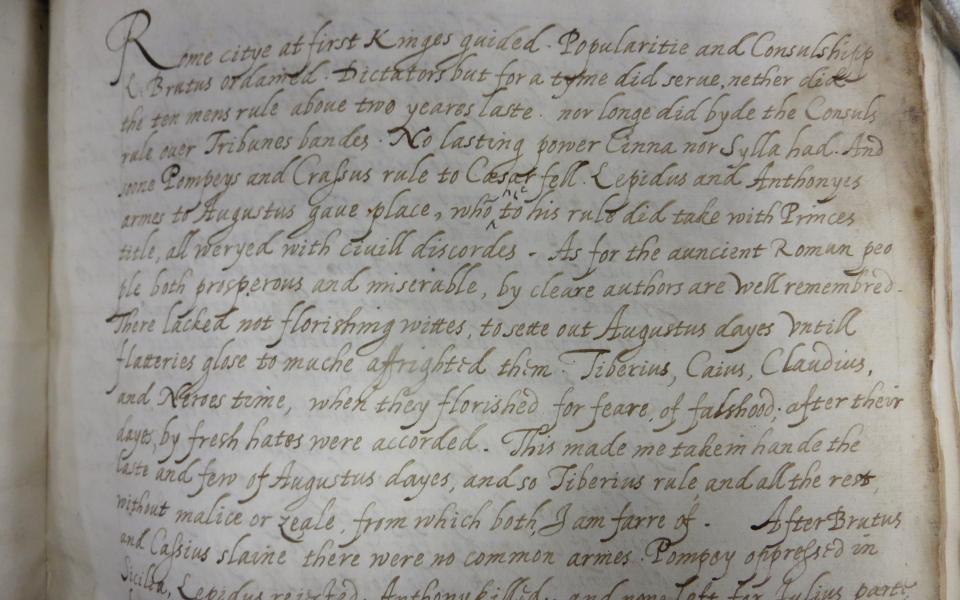 Rome citye at first Kinges guided. Popularitie and Consulshipp
L. Brutus ordained. Dictators but for a tyme did serve, nether did
the ten mens rule above two yeares laste. nor longe did byde the Consuls
rule over Tribunes bandes. No lasting power Cinna nor Sylla had. And
soone Pompeys and Crassus rule to Cæsar fell. Lepidus and Anthonyes
armes to Augustus gave place, who to his rule did take with Princes
title, all weryed with civill discordes - As for the auncient Roman peo
ple both prosperous and miserable, by cleare authors are well remembred.
There lacked not florishing wittes, to sette out Augustus dayes Vntill
flatteries glose to muche affrighted them. Tiberius, Caius, Claudius,
and Neroes time, when they florished for feare, of falshood; after their
dayes, by fresh hates were accorded. This made me take in hande the
laste and few of Augustus dayes, and so Tiberius rule and all the rest,
without malice or zeale, from which both, I am farre of. After Brutus
and Cassius slaine there were no common armes. Pompey oppressed in
Sicilia, Lepidus rejected, Anthony killed, and none left for Julius parte